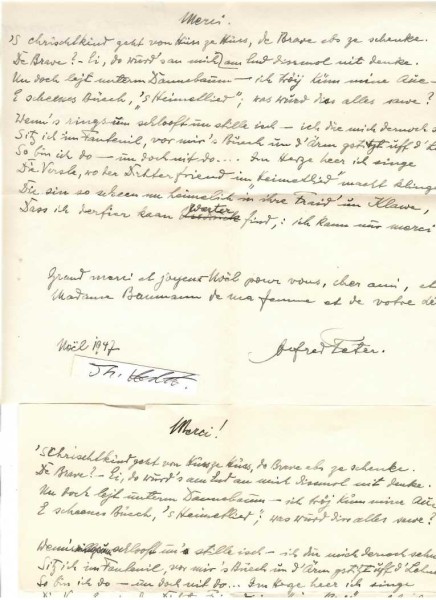 Merci.
's Chrischtkind geht von Hüss ze Hüss, de Brave ebs ze schenke.
De Brave? - Ei, do würd's am End an mich diesmol nit denke.
Un doch lejt unterm Dannebaum - ich tröj küm mine Aue -
E scheenes Büech, "'s Heimetlied"; was würd dies alles
Wenn's rings um schlooft un stille isch - ich
Sitz ich im Fauteuil, vor mir's Büech un d'Ärm gstitzt uff d'
So bin ich do - un doch nit do... Im Herze heer ich singe
Die Versle, wo der Dichterfriend im "Heimetlied" macht klinge
Die sin so scheen un heimelich in ihre Freid un
Dass ich derfier kaan Werter find, ; ich kann nur merci
Grand merci et joyeux Noël pour vous, cher ami, et
Madame Baumann de ma femme et de votre
Noël 1947
Merci!
's Chrischtkind geht von Hüss ze Hüss, de Brave ebs ze schenke.
De Brave? - Ei, do würd's am End an mich diesmol nit denke.
Un doch lejt unterm Dannebaum - ich tröj küm mine Aue
E scheenes Büech, 's Heimetlied; was würd dies alles
schlooft un's stille isch - ich
Sitz ich im Fauteuil, vor mir's Büech un d'Ärm gstitzt uff d'Lehne
So bin ich do - un doch nit do... Im Herze heer ich singe